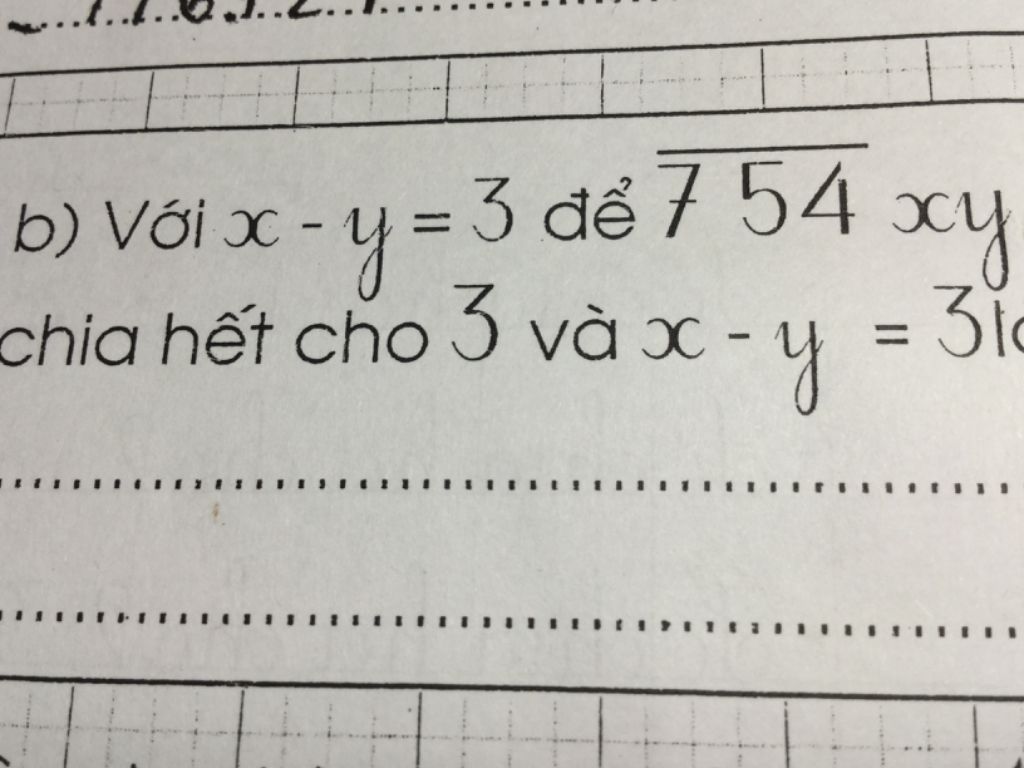 b) Với x - y = 3 để 7 54 xy
chia hết cho 3 và x - y = 3